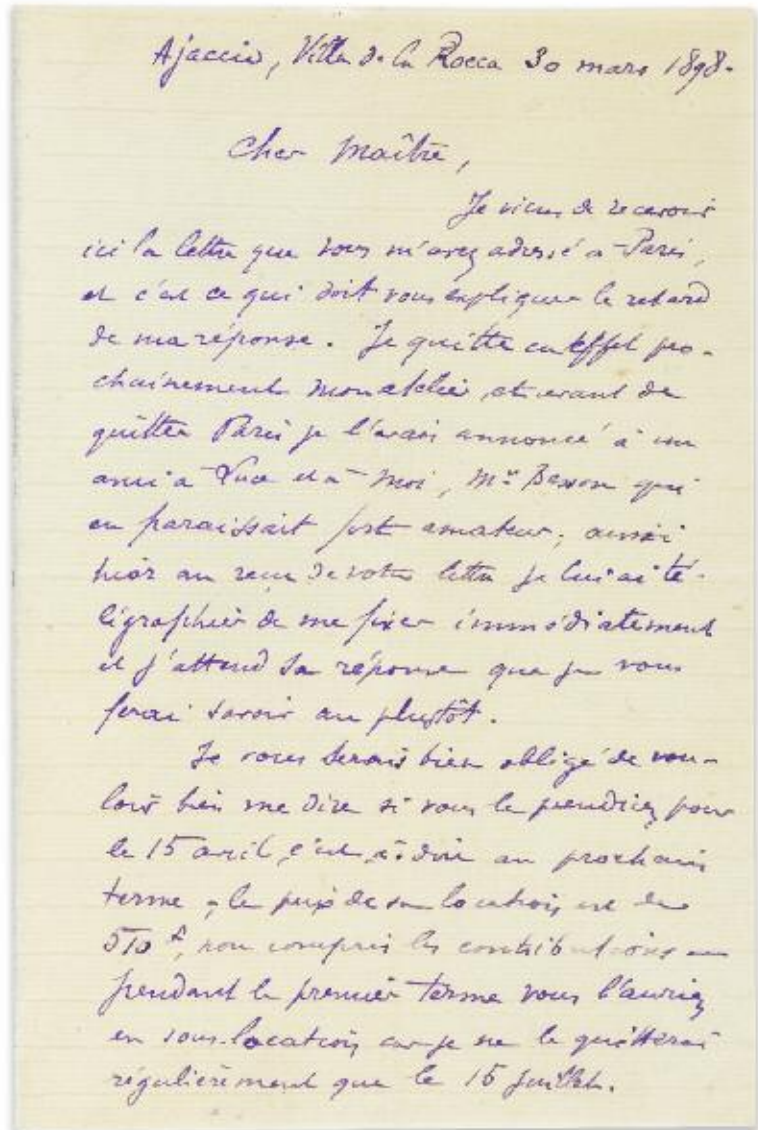 Ajaccio, Villa de la Rocca 30 mars 1898.
Cher Maître,
Je viens de recevoir
ici la lettre que vous m'avez adressé à Paris,
et c'est ce qui doit vous expliquer le retard
de ma réponse. Je quitte en effet pro-
chainement mon atelier, et avant de
quitter Paris je l'avais annoncé à un
ami à Luce et à moi, Mr qui
en paraissait fort amateur; aussi
hier au reçu de votre lettre je lui ai té-
légraphier de me fixer immédiatement
et j'attend sa réponse que je vous
ferai savoir au plustôt.
Je vous serais bien obligé de vou-
loir bien me dire si vous le prendriez pour
le 15 avril, c'est à dire au prochain
terme, le prix de sa location est de
510 f, non compris les contributions
pendant le premier terme vous l'auriez
en sous-location car je ne le quitterai
régulièrement que le 15 juillet.